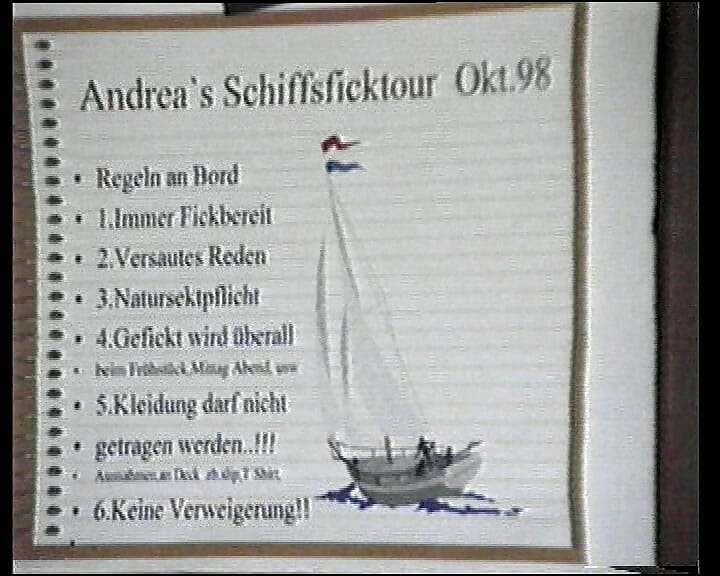 Andrea`s Schiffsficktour Okt.98
• Regeln an Bord
• 1.Immer Fickbereit
• 2.Versautes Reden
• 3.Natursektpflicht
• 4.Gefickt wird überall
• beim Frühstück,Mittag Abend, usw
• 5.Kleidung darf nicht
• getragen werden..!!!
• Ausnahmen,an Deck zb.slip,T Shirt,
• 6.Keine Verweigerung!!